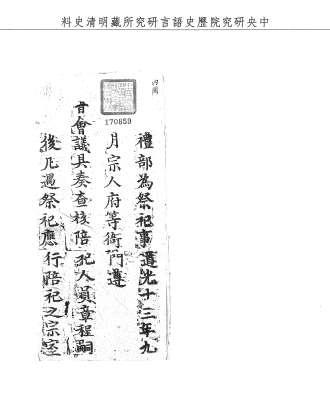 中央研究院歷史語言研究所藏明清史料
內閣
170859
禮部為祭祀事道光十三年九
月宗人府等衙門遵
旨會議具奏查核陪祀人員章程嗣
後凡遇祭祀應行陪祀之宗室